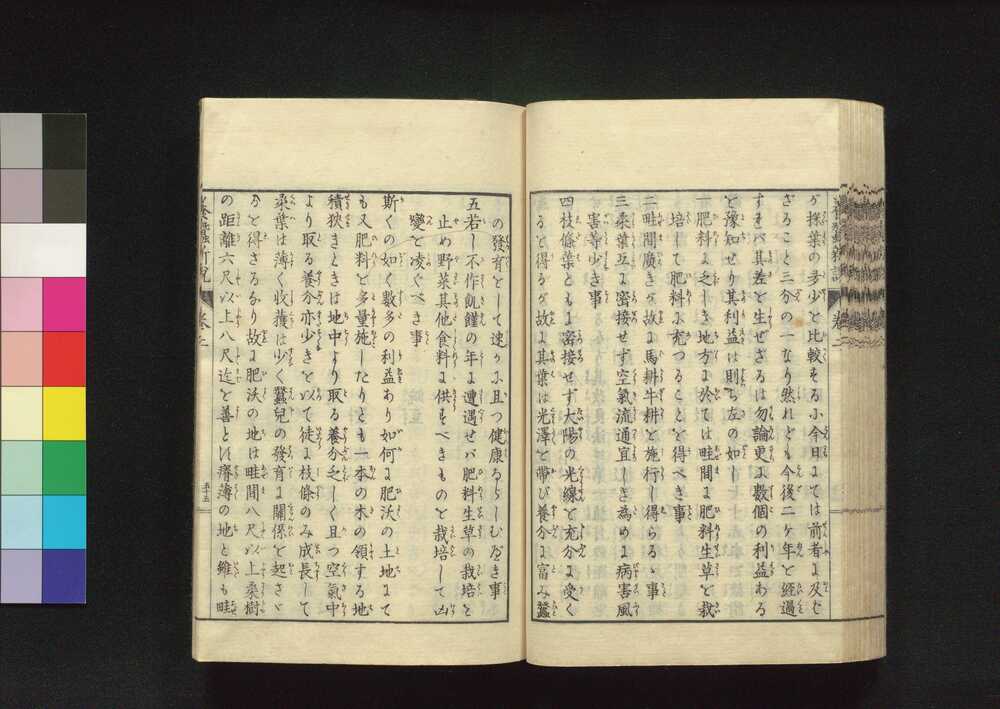 が採葉の多少と比較するに今日にては前者に及ば
ざること三分の一なり然れども今後二ヶ年を經過
すれバ其差を生ぜざるは勿論更に數個の利益ある
を豫知せり其利益は則ち左の如し
一肥料に乏しき地方に於ては畦間に肥料生草を栽
培して肥料に充つることを得べき事
二畦間廣きが故に馬耕牛耕を施行し得らるゝ事
三桑葉互に密接せず空氣流通宜しき為めに病害風
害等少き事
四枝條葉ともに密接せず太陽の光線を充分に受く
るを得るが故に其葉は光澤を帶び養分に富み蠶
の發育をして速かに且つ健康ならしむべき事
五若し不作飢饉の年に遭遇せバ肥料生草の栽培を
止め野菜其他食料に供すべきものを栽培して凶
變を凌ぐべき事
斯くの如く數多の利益あり如何に肥沃の土地にて
も又肥料を多量施したりとも一本の木の領する地
積狹きときは地中より取る養分乏しく且つ空氣中
より取る養分亦少きを以て徒に枝條のみ成長して
桑葉は薄く收穫は少く蠶兒の發育に關係を起さゞ
るを得ざるなり故に肥沃の地は畦間八尺以上桑樹
の距離六尺以上八尺迄を善とし瘠薄の地と雖も畦
五十五